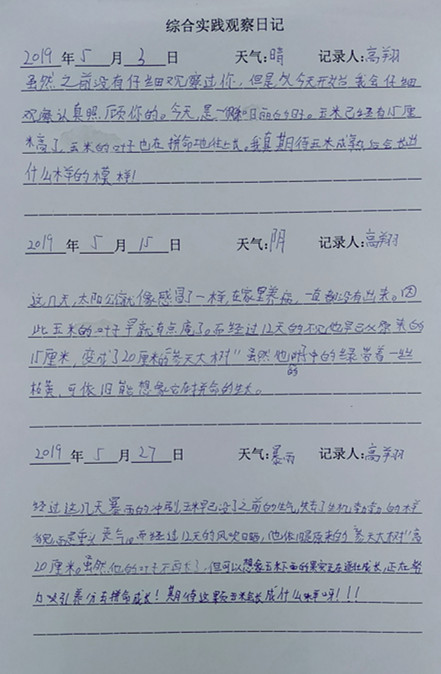 综合实践观察日记
2019 年 5 月 3 日 天气:晴 记录人:高翔
虽然之前没有仔细观察过你,但是从今天开始我会仔细
观察认真照顾你的。今天,是一个晴日。玉米已经有15厘
米高了,玉米的叶子也在拼命地往上长,我真期待玉米成熟后会长出
什么样的模样!
2019 年 5 月 15 日 天气:阴 记录人:高翔
这几天,太阳公公就像感冒了一样,在家里养病,一直都没有出来。因
此玉米的叶子早就有点
15厘米,变成了20厘米的"参天大树"虽然他的叶中的绿带着一些
枯黄,可依旧能想象它在拼命的生长。
2019 年 5 月 27 日 天气:暴雨 记录人:高翔
经过这几天暴雨的冲刷,玉米早已没了之前的生气,失去了生机勃勃的的样
经过12天的风吹日晒,他依旧原来的"参天大树"高
20厘米。虽然他的叶子 但可以想象玉米下面的果实正在茁壮成长,正在努
力吸引养分去拼命成长!期待这颗玉米会长成什么样呀!!!